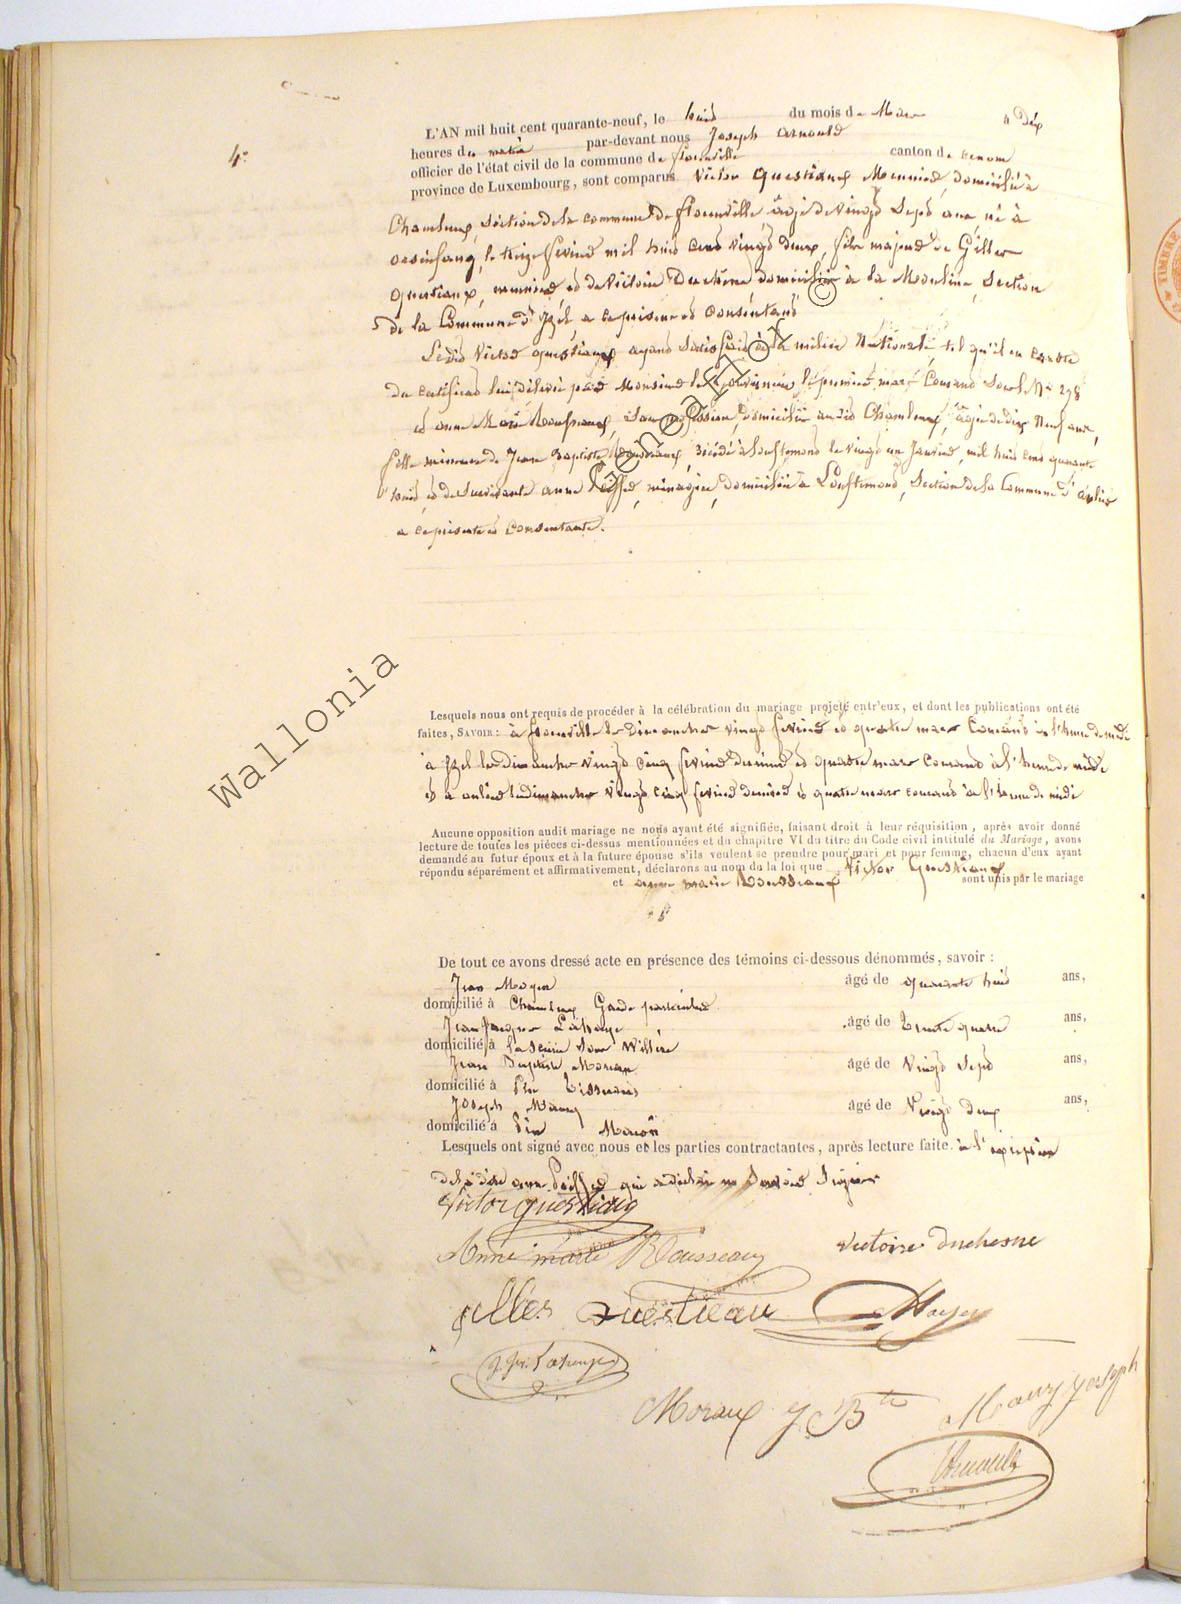 4.
L'AN mil huit cent quarante-neuf, le huit du mois de Mars à dix
heures du matin par-devant nous Joseph Arnould
officier de l'état civil de la commune de florenville canton de
province de Luxembourg, sont comparus Victor Questiaux Menuisier, domicilié à
Chameleux, section de la commune de florenville, âgé de vingt sept ans, né à
orsinfaing, le treize février mil huit cent vingt deux, fils majeur de Gilles
Questiaux, menuisier et de Victoire Duchêne domiciliés à la Mouline, section
de la Commune d'Izel, a ce présents et consentants
Ledit Victor questiaux ayant satisfait à la milice Nationale, tel qu'il en conste
du certificat lui délivré par Monsieur le Gouverneur le premier mars Courant sous le N° 298
et anne Marie Rousseaux, sans profession, domiciliée audit Chameleux, âgée de dix Neuf ans,
fille mineure de Jean Baptiste Rousseaux, décédé à Louftémont le vingt un Janvier, mil huit cent quarante
huit, et de Survivante anne ménagère, domiciliée à Louftémont, section de la Commune d'anlier
a ce présente et consentante.
Lesquels nous ont requis de procéder à la célébration du mariage projeté entr'eux, et dont les publications ont été
faites, SAVOIR : à florenville les Dimanches vingt février et quatre mars Courant à l'heure de midi
à Izel les dimanches vingt cinq février dernier et quatre mars Courant à l'heure de midi
et à anlier les dimanches vingt cinq février dernier et quatre mars courant à l'heure de midi
Aucune opposition audit mariage ne nous ayant été signifiée, faisant droit à leur réquisition, après avoir donné
lecture de toutes les pièces ci-dessus mentionnées et du chapitre VI du titre du Code civil intitulé du Mariage, avons
demandé au futur époux et à la future épouse s'ils veulent se prendre pour mari et pour femme, chacun d'eux ayant
répondu séparément et affirmativement, déclarons au nom de la loi que Victor Questiaux
et anne marie Rousseaux sont unis par le mariage
De tout ce avons dressé acte en présence des témoins ci-dessous dénommés, savoir :
Jean Moyen âgé de quarante huit ans,
domicilié à Chameleux Garde particulier
Jean Jacques Lahaye âgé de trente quatre ans,
domicilié à
Jean Baptiste Moraux âgé de Vingt sept ans,
domicilié à Pin Tisserand
Joseph Mauxy âgé de Vingt deux ans,
domicilié à Pin Maçon
Lesquels ont signé avec nous et les parties contractantes, après lecture faite. à l'exception
de la dite anne qui a déclaré ne savoir signer
Victor questiaux
Anne marie Rousseaux victoire duchesne
gilles questieau Moyen
Moraux J Bte Mauxy yoseph
Arnould
Wallonia Genealogy ©
TIMBRE